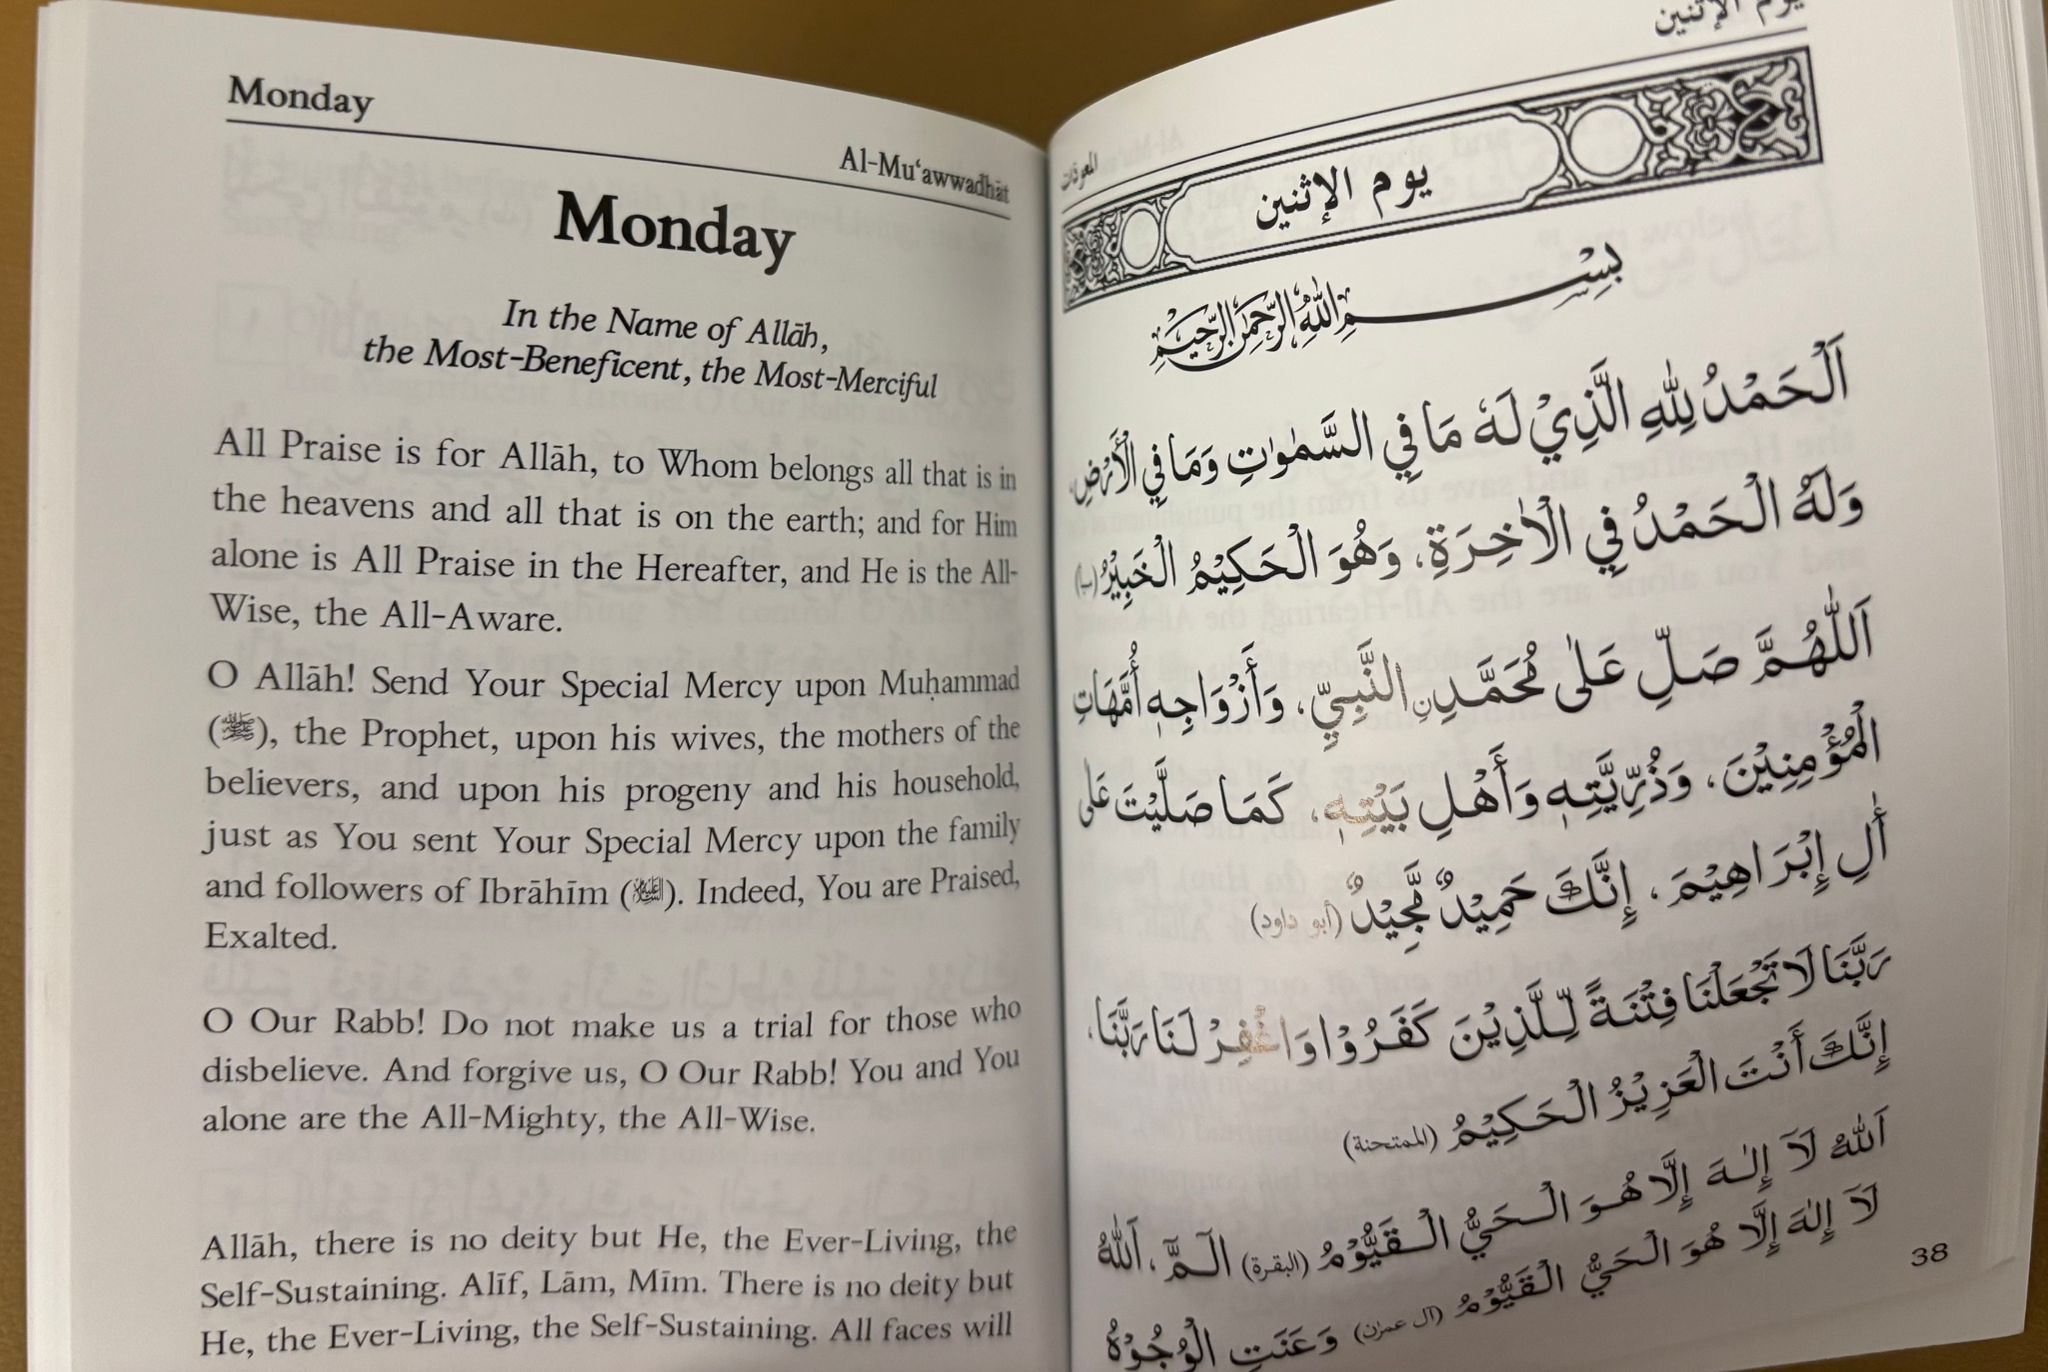 Monday
Al-Mu‘awwadhāt
Monday
In the Name of Allāh,
the Most-Beneficent, the Most-Merciful
All Praise is for Allāh, to Whom belongs all that is in
the heavens and all that is on the earth; and for Him
alone is All Praise in the Hereafter, and He is the All-
Wise, the All-Aware.
O Allāh! Send Your Special Mercy upon Muḥammad
(ﷺ), the Prophet, upon his wives, the mothers of the
believers, and upon his progeny and his household,
just as You sent Your Special Mercy upon the family
and followers of Ibrāhīm (). Indeed, You are Praised,
Exalted.
O Our Rabb! Do not make us a trial for those who
disbelieve. And forgive us, O Our Rabb! You and You
alone are the All-Mighty, the All-Wise.
Allāh, there is no deity but He, the Ever-Living, the
Self-Sustaining. Alīf, Lām, Mīm. There is no deity but
He, the Ever-Living, the Self-Sustaining. All faces will
يوم الإثنين
المعوذات
يوم الإثنين
بِسْمِ اللهِ الرَّحْمٰنِ الرَّحِيْمِ
اَلْحَمْدُ لِلّٰهِ الَّذِيْ لَهٗ مَا فِي السَّمٰوٰتِ وَمَا فِي الْأَرْضِ،
وَلَهُ الْحَمْدُ فِي الْاٰخِرَةِ، وَهُوَ الْحَكِيْمُ الْخَبِيْرُ (سبأ)
اَللّٰهُمَّ صَلِّ عَلٰى مُحَمَّدِنِ النَّبِيِّ، وَأَزْوَاجِهٖ أُمَّهَاتِ
الْمُؤْمِنِيْنَ، وَذُرِّيَّتِهٖ وَأَهْلِ بَيْتِهٖ، كَمَا صَلَّيْتَ عَلٰى
أٰلِ إِبْرَاهِيْمَ، إِنَّكَ حَمِيْدٌ مَّجِيْدٌ (أبو داود)
رَبَّنَا لَا تَجْعَلْنَا فِتْنَةً لِّلَّذِيْنَ كَفَرُوْا وَاغْفِرْ لَنَا رَبَّنَا،
إِنَّكَ أَنْتَ الْعَزِيْزُ الْحَكِيْمُ (الممتحنة)
اَللّٰهُ لَآ إِلٰهَ إِلَّا هُوَ الْحَيُّ الْقَيُّوْمُ (البقرة) الٓمّٓ، اَللّٰهُ
لَآ إِلٰهَ إِلَّا هُوَ الْحَيُّ الْقَيُّوْمُ (ال عمرٰن) وَعَنَتِ الْوُجُوْهُ
38